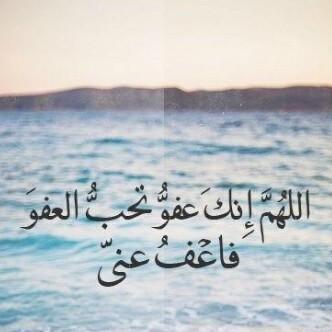 اللهُمَّ إِنكَ عفوٌّ تحبُّ العفوَ
فاعْفُ عنيّ